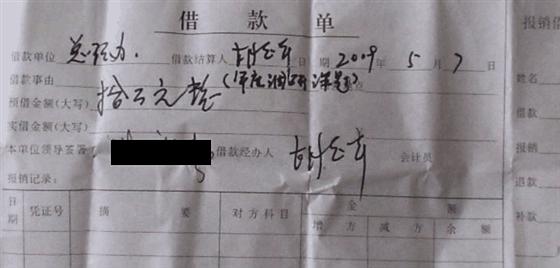 借款单
借款单位 总经办 借款结算人 日期 2009年5月7日
借款事由 (年度调研课题) 单位
预借金额(大写) 拾万元整
实借金额(大写)
本单位领导签署 借款经办人 会计员
报销记录:
日期 凭证号 摘要 对方科目 金额
增方 减方 余额
报销借
姓名
借款
报销
退款
补款